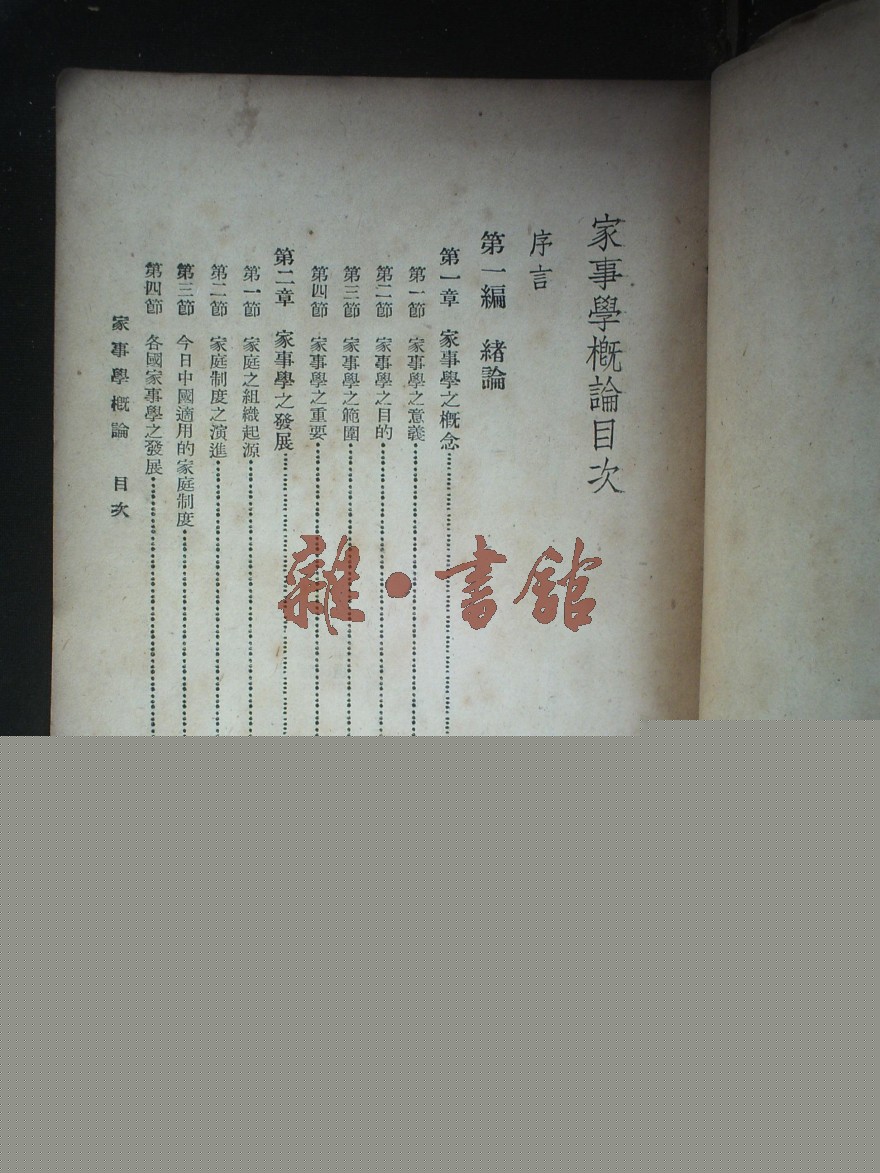 家事學概論目次
序言
第一編 緒論
第一章 家事學之概念
第一節 家事學之意義
第二節 家事學之目的
第三節 家事學之範圍
第四節 家事學之重要
第二章 家事學之發展
第一節 家庭之組織起源
第二節 家庭制度之演進
第三節 今日中國適用的家庭制度
第四節 各國家事學之發展
家事學概論 目次
雜·書館